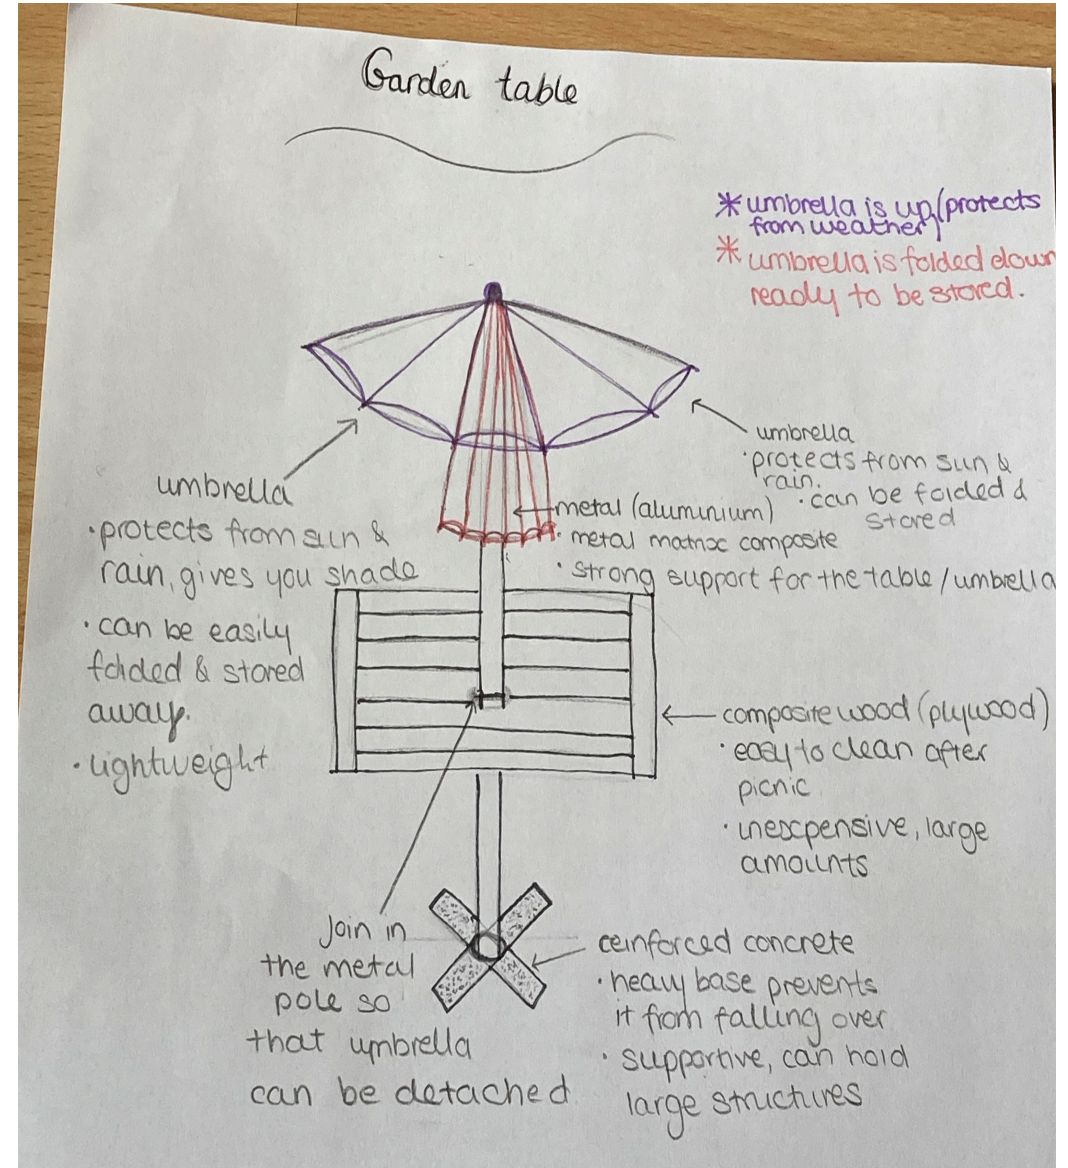 Garden table
*umbrella is up (protects
from weather)
*umbrella is folded down
ready to be stored.
umbrella
·protects from sun &
rain.
·can be folded &
stored
umbrella
·protects from sun &
rain, gives you shade
·can be easily
folded & stored
away.
·lightweight
metal (aluminium)
·metal matrix composite
·strong support for the table/umbrella
composite wood (plywood)
·easy to clean after
picnic
·inexpensive, large
amounts
Join in
the metal
pole so
that umbrella
can be detached
reinforced concrete
·heavy base prevents
it from falling over
·supportive, can hold
large structures